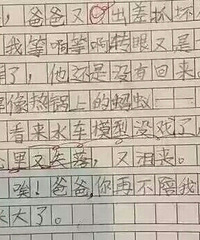 ，爸爸又出差抓坏
我等啊等啊，转眼又是
周了，他还是没有回来。
像热锅上的蚂蚁——
看来水车模型没戏了，
心里又失落，又沮丧。
唉！爸爸，你再不陪我
长大了。